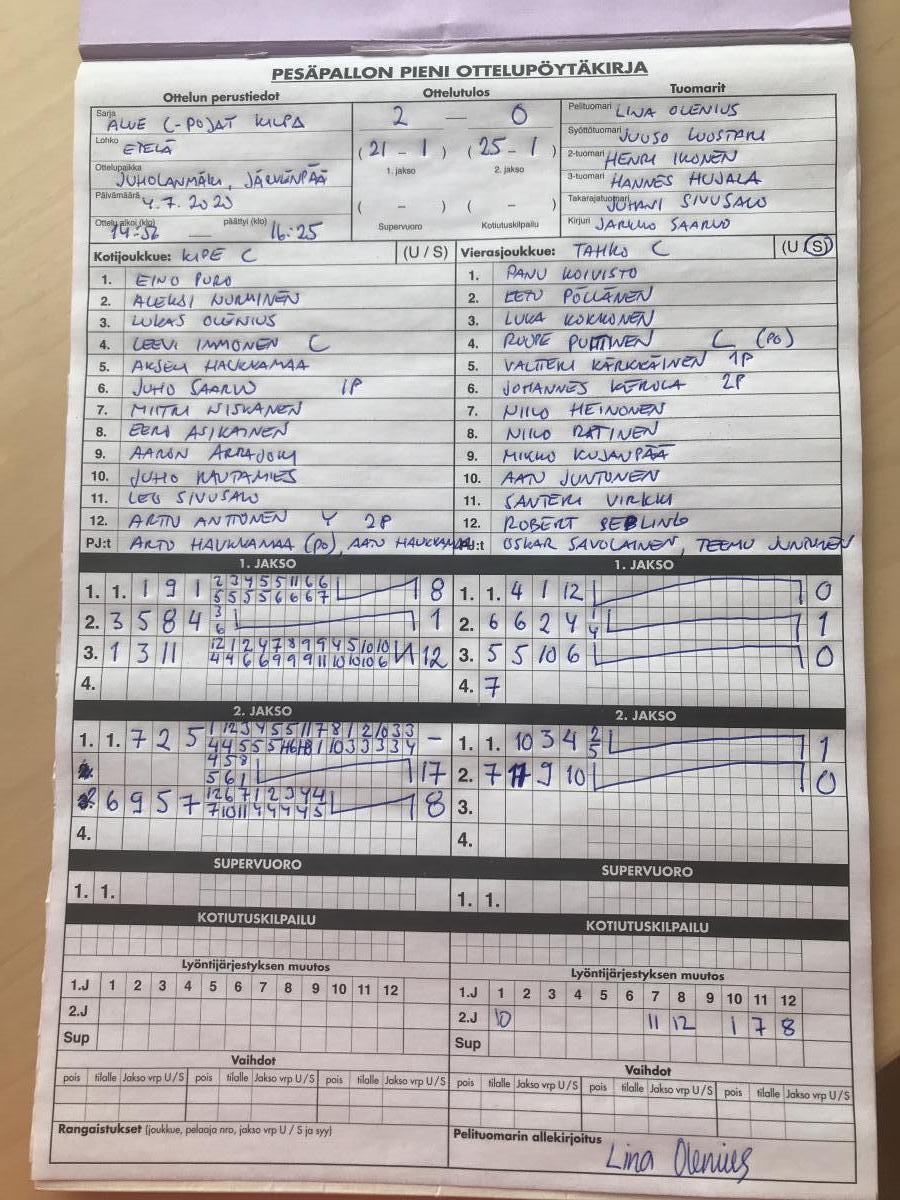 PESÄPALLON PIENI OTTELUPÖYTÄKIRJA
Ottelun perustiedot Ottelutulos Tuomarit
Sarja ALUE C-POJAT KILPA
Lohko ETELÄ
Ottelupaikka JUHOLANMÄKI, JÄRVENPÄÄ
Päivämäärä 4.7.2020
Ottelu alkoi (klo) 14:32 — päättyi (klo) 16:25
2 — 0
(21 - 1) (25 - 1)
1. jakso 2. jakso
( - ) ( - )
Supervuoro Kotiutuskilpailu
Pelituomari LINA OLENIUS
Syöttötuomari JUUSO LUOSTARI
2-tuomari HENRI IKONEN
3-tuomari HANNES HUJALA
Takarajatuomari JUHANI SIVUSALO
Kirjuri JARKKO SAARVO
Kotijoukkue: KIPE C (U / S)
1. EINO PURO
2. ALEKSI NURMINEN
3. LUKAS OLENIUS
4. LEEVI IMMONEN C
5. AKSELI HAUKKAMAA
6. JUHO SAARVO 1P
7. MIITRI NISKANEN
8. EERO ASIKAINEN
9. AARON ARRAJOKI
10. JUHO RAUTAMIES
11. LEO SIVUSALO
12. ARTTU ANTTONEN Y 2P
PJ:t ARTO HAUKKAMAA (PO), AATU HAUKKAMAA
Vierasjoukkue: TAHKO C (U / S)
1. PANU KOIVISTO
2. EETU PÖLLÄNEN
3. LUKA KOKKONEN
4. ROOPE PUTTINEN C (PO)
5. VALTTERI KÄRKKÄINEN 1P
6. JOHANNES KEROLA 2P
7. NIILO HEINONEN
8. NIILO RATINEN
9. MIKKO KUJANPÄÄ
10. AATU JUNTUNEN
11. SANTERI VIRKKI
12. ROBERT SEBLING
PJ:t OSKAR SAVOLAINEN, TEEMU JUNTUNEN
1. JAKSO
1. 1. 1 9 1 2 3 4 5 5 11 6 6 8
5 5 5 5 6 6 6 7
2. 3 5 8 4 3 1
6
3. 1 3 11 12 1 2 4 7 8 9 9 4 5 10 10 12
4 4 6 6 9 9 9 11 10 10 10 6
4.
1. JAKSO
1. 1. 4 1 12 0
2. 6 6 2 4 1 1
4
3. 5 5 10 6 0
4. 7
2. JAKSO
1. 1. 7 2 5 1 12 3 4 5 5 11 7 8 1 2 10 3 3 —
4 5 8 17
5 6 1
6 9 5 7 12 6 7 1 2 3 4 4 8
7 10 11 4 4 4 4 5
4.
2. JAKSO
1. 1. 10 3 4 2 1
5
2. 7 11 9 10 0
3.
4.
SUPERVUORO
1. 1.
SUPERVUORO
1. 1.
KOTIUTUSKILPAILU
KOTIUTUSKILPAILU
Lyöntijärjestyksen muutos
1.J 1 2 3 4 5 6 7 8 9 10 11 12
2.J
Sup
Lyöntijärjestyksen muutos
1.J 1 2 3 4 5 6 7 8 9 10 11 12
2.J 10 11 12 1 7 8
Sup
Vaihdot
pois tilalle Jakso vrp U / S pois tilalle Jakso vrp U / S pois tilalle Jakso vrp U / S
Vaihdot
pois tilalle Jakso vrp U / S pois tilalle Jakso vrp U / S pois tilalle Jakso vrp U / S
Rangaistukset (joukkue, pelaaja nro, jakso vrp U / S ja syy)
Pelituomarin allekirjoitus
Lina Olenius